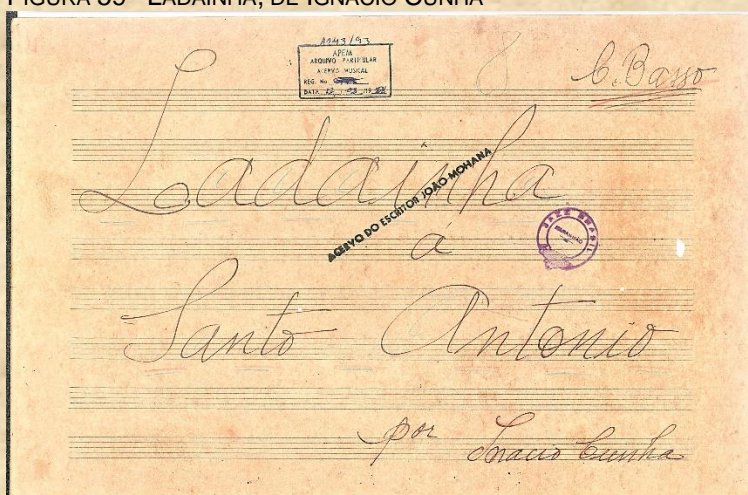 FIGURA 39 - LADAINHA, DE IGNÁCIO CUNHA
1143/93
APEM
ARQUIVO PARTICULAR
ACERVO MUSICAL
REG. No
DATA
C. Basso
Ladaínha
ACERVO DO ESCRITOR JOÃO MOHANA
á
BRASIL
MARANHÃO
Santo Antonio
por Ignacio Cunha